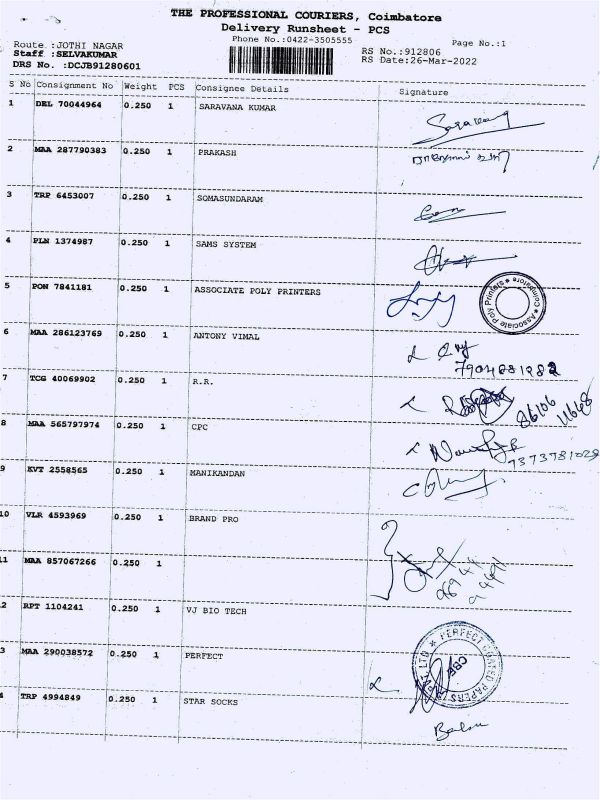 THE PROFESSIONAL COURIERS, Coimbatore
Delivery Runsheet - PCS
Phone No.:0422-3505555
Page No.:1
Route :JOTHI NAGAR
Staff :SELVAKUMAR
DRS No. :DCJB91280601
RS No.:912806
RS Date:26-Mar-2022
S No Consignment No Weight PCS Consignee Details Signature
1 DEL 70044964 0.250 1 SARAVANA KUMAR
2 MAA 287790383 0.250 1 PRAKASH
3 TRP 6453007 0.250 1 SOMASUNDARAM
4 PLN 1374987 0.250 1 SAMS SYSTEM
5 PON 7841181 0.250 1 ASSOCIATE POLY PRINTERS
Associate Poly Printers ★ Coimbatore ★
6 MAA 286123769 0.250 1 ANTONY VIMAL
7 TCG 40069902 0.250 1 R.R.
86106
8 MAA 565797974 0.250 1 CPC
7373781029
9 KVT 2558565 0.250 1 MANIKANDAN
10 VLR 4593969 0.250 1 BRAND PRO
11 MAA 857067266 0.250 1
2 RPT 1104241 0.250 1 VJ BIO TECH
3 MAA 290038572 0.250 1 PERFECT
★ PERFECT COATED PAPERS PVT LTD
CBE
4 TRP 4994849 0.250 1 STAR SOCKS